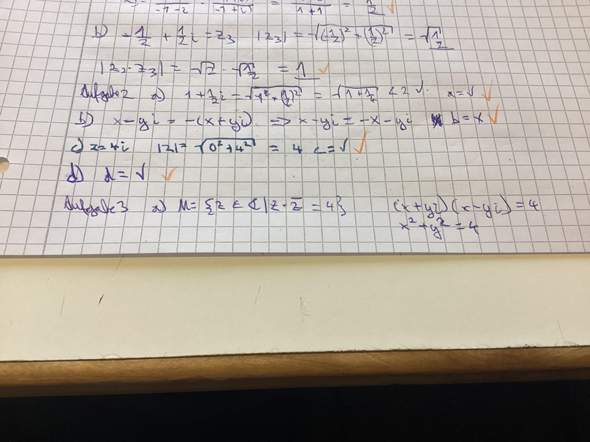 b) -1/2 + 1/2 i = z₃ |z₃| = √((-1/2)² + (1/2)²) = √(1/2)
|z₂·z₃| = √2 · √(1/2) = 1 ✓
Aufgabe 2 a) 1 + 1/2 i = √(1² + (1/2)²) = √(1 + 1/4) < 2 √. a = √ ✓
b) x - yi = -(x + yi) ⇒ x - yi = -x - yi b = x ✓
c) z = 4i |z| = √(0² + 4²) = 4 c = √ ✓
d) d = √ ✓
Aufgabe 3 a) M = {z ∈ ℂ | z · z̅ = 4} (x + yi)(x - yi) = 4
x² + y² = 4